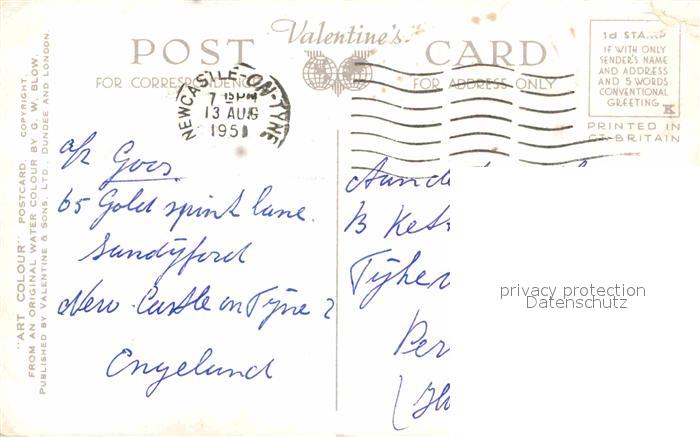 POST Valentine's CARD
FOR CORRESPONDENCE FOR ADDRESS ONLY
1d STAMP
IF WITH ONLY
SENDER'S NAME
AND ADDRESS
AND 5 WORDS
CONVENTIONAL
GREETING
PRINTED IN
GT. BRITAIN
NEWCASTLE-ON-TYNE
7 15 PM
13 AUG
1951
"ART COLOUR" POSTCARD. COPYRIGHT.
FROM AN ORIGINAL WATER COLOUR BY G. W. BLOW.
PUBLISHED BY VALENTINE & SONS, LTD., DUNDEE AND LONDON.
Goos
65 Gold spink lane.
Sandyford
New. Castle on Tyne 2
Engelund
B Ket
Per
privacy protection
Datenschutz